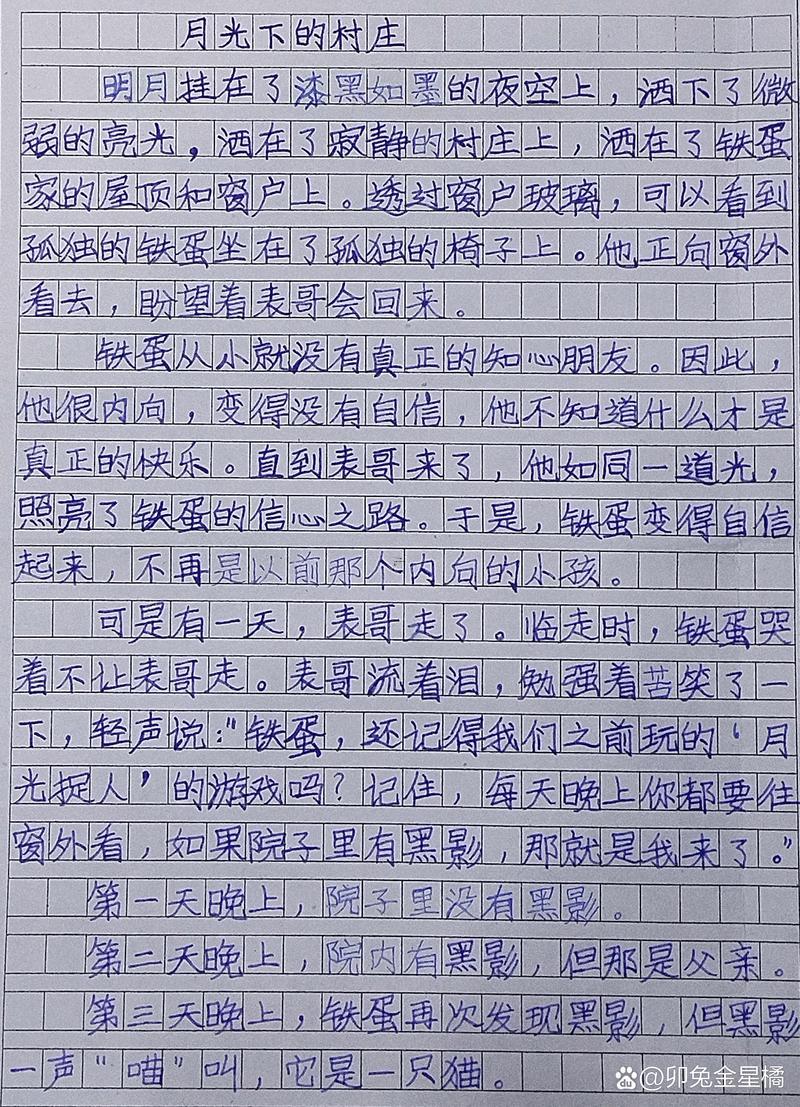 月光下的村庄
明月挂在了漆黑如墨的夜空上，洒下了微
弱的亮光，洒在了寂静的村庄上，洒在了铁蛋
家的屋顶和窗户上。透过窗户玻璃，可以看到
孤独的铁蛋坐在了孤独的椅子上。他正向窗外
看去，盼望着表哥会回来。
铁蛋从小就没有真正的知心朋友。因此，
他很内向，变得没有自信，他不知道什么才是
真正的快乐。直到表哥来了，他如同一道光，
照亮了铁蛋的信心之路。于是，铁蛋变得自信
起来，不再是以前那个内向的小孩。
可是有一天，表哥走了。临走时，铁蛋哭
着不让表哥走。表哥流着泪，勉强着苦笑了一
下，轻声说：“铁蛋，还记得我们之前玩的‘月
光捉人’的游戏吗？记住，每天晚上你都要往
窗外看，如果院子里有黑影，那就是我来了。”
第一天晚上，院子里没有黑影。
第二天晚上，院内有黑影，但那是父亲。
第三天晚上，铁蛋再次发现黑影，但黑影
一声“喵”叫，它是一只猫。
Bai度 @卯兔金星橘